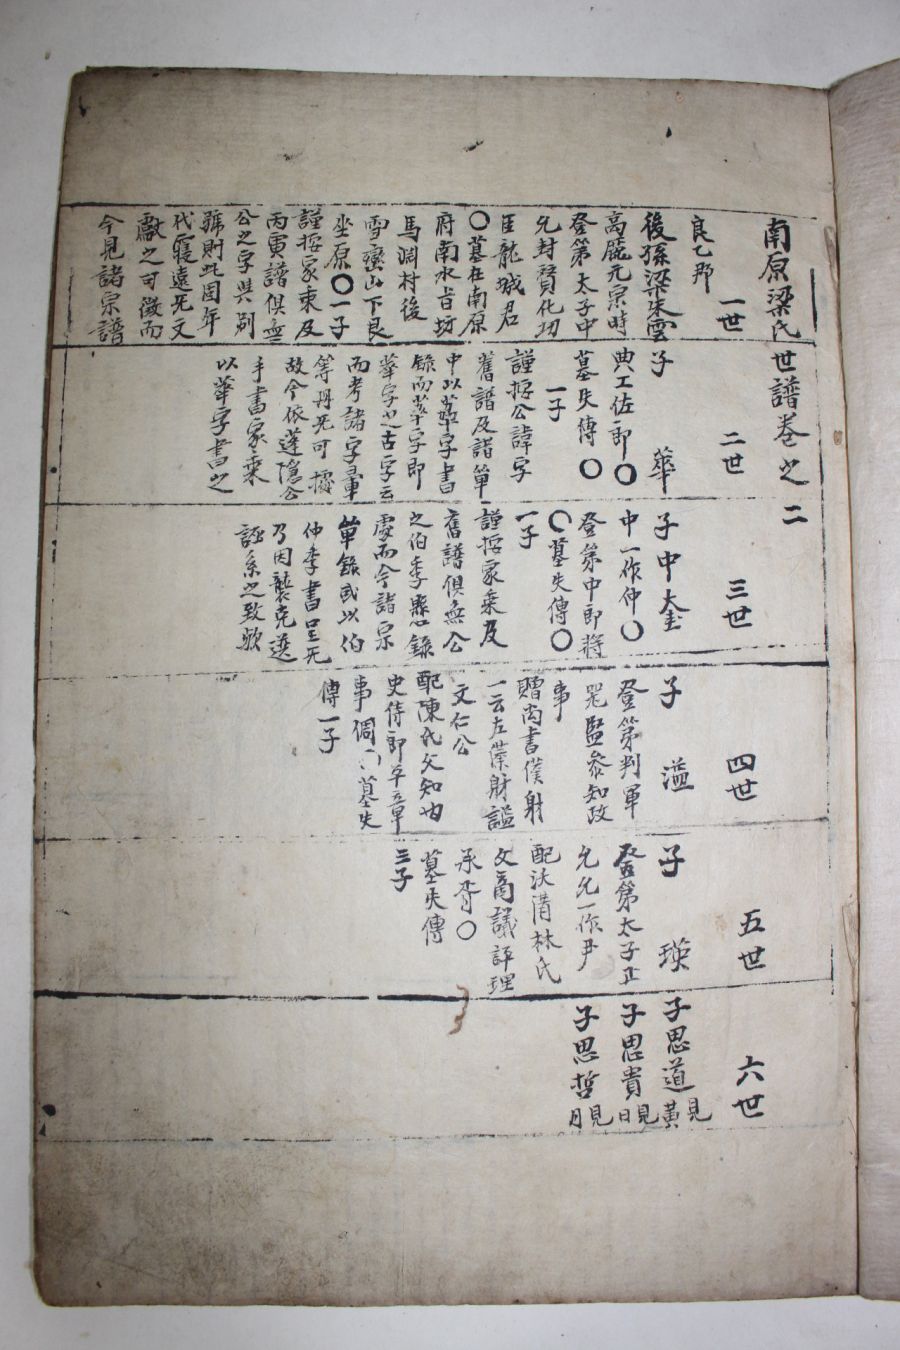 南原梁氏世譜卷之二
一世
良乙那
後孫梁朱雲
高麗元宗時
登第太子中
允封贊化功
臣龍城君
〇墓在南原
府南水旨坊
馬淵村後
雪巒山下艮
坐原〇一子
謹按家乘及
丙寅譜俱無
公之字與別
號則此固年
代寢遠无文
獻之可徵而
今見諸宗譜
二世
子 華
典工佐郞〇
墓失傳〇
一子
謹按公諱字
舊譜及諸單
中以蕐字書
錄而蕐字即
華字之古字云
而考諸字彙
等冊无可據
故今依蓬隱公
手書家乘
以華字書之
三世
子中
中一作仲〇
登第中郞將
〇墓失傳〇
一子
謹按家乘及
舊譜俱無公
之伯季懸錄
處而今諸宗
單錄或以伯
仲季書呈无
乃因襲克選
誣系之致歟
四世
子 溢
登第判軍
器監參知政
事
贈尙書僕射
一云左僕射謚
文仁公
配陳氏父知內
史侍郞平章
事倜〇墓失
傳一子
五世
子 瑛
登第太子正
允允一作尹
配沃溝林氏
父商議評理
承胥〇
墓失傳
三子
六世
子思道見黃
子思貴見日
子思哲見月